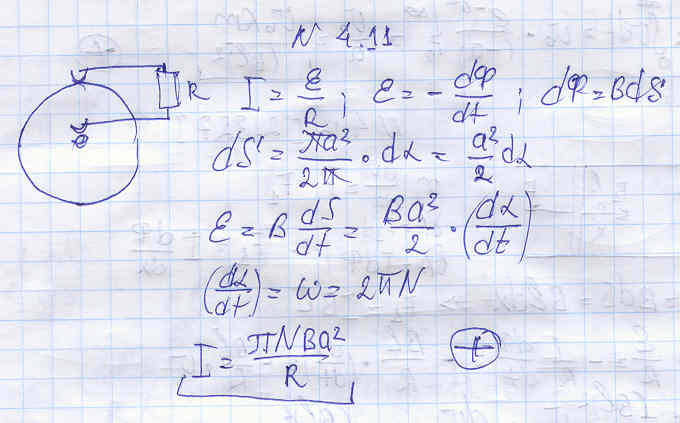 N 4.11
R
I = ℰ/R ; ℰ = - dФ/dt ; dФ = BdS
dS = πa²/2π · dα = a²/2 dα
ℰ = B dS/dt = Ba²/2 · (dα/dt)
(dα/dt) = ω = 2πN
I = πNBa²/R
+